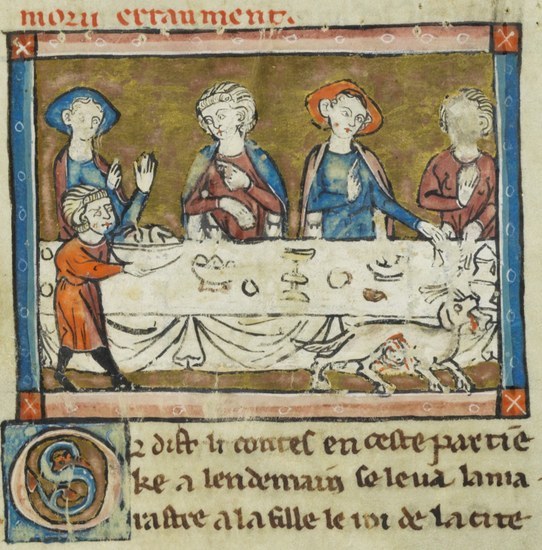 moru erraument.
Or dist li contes en ceste partie
ke a lendemain se leva la ma
rastre a la fille le roi de la cite